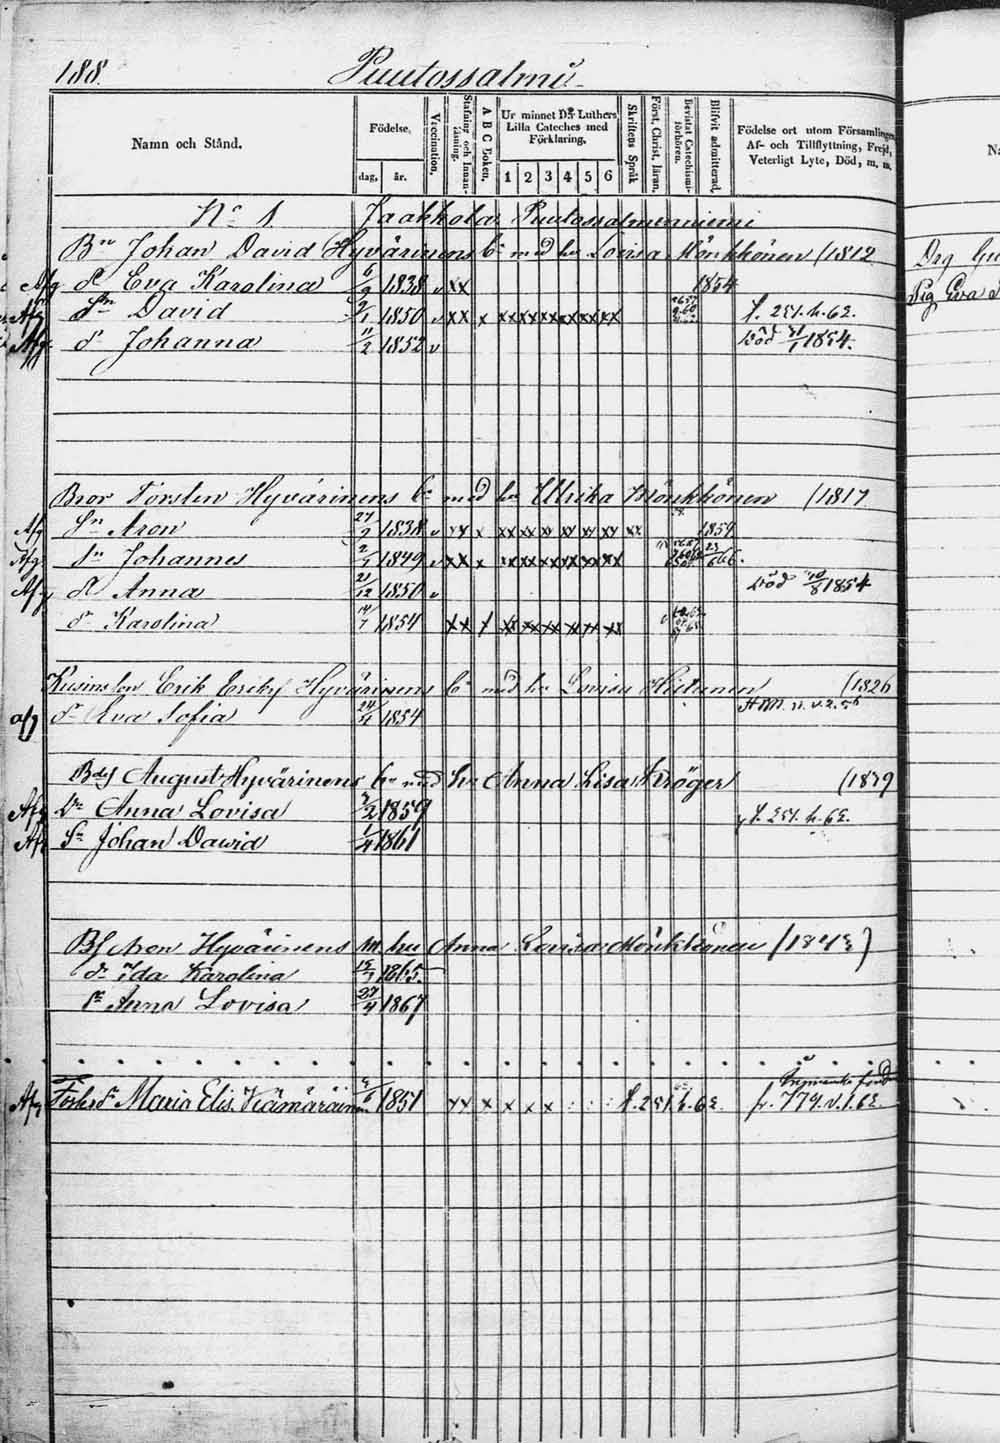 188. Puutossalmi
Namn och Stånd.
Födelse,
dag, år.
Vaccination.
Stafning och Innanläsning.
A B C Boken.
Ur minnet D:r Luthers Lilla Cateches med Förklaring.
1 2 3 4 5 6
Skriftens Språk
Först. Christ. läran.
Bevistat Catechismiförhören.
Blifvit admitterad.
Födelse ort utom Församlingen,
Af- och Tillflyttning, Frejd,
Veterligt Lyte, Död, m. m.
N:o 1 Jaakkola Puutossalmenniemi
Bn Johan David Hyvärinens bn med hu Lovisa Mönkkönen (1812
Afg dr Eva Karolina 6/9 1838 v xx 1854
Afg Sn David 9/1 1850 v xx x xx xx xx xx xx xx f. 251. h. 62.
Afg dr Johanna 11/2 1852 v Död 31/1 1854.
Bror Torsten Hyvärinens bn med hu Ulrika Mönkkönen (1817
Afg Sn Aron 27/9 1838 v xx x xx xx xx xx xx xx xx 1859
Afg Sn Johannes 2/1 1849 v xx x xx xx xx xx xx xx
Afg dr Anna 21/12 1850 v Död 10/8 1854
dr Karolina 14/7 1854 xx x xx xx xx xx xx xx
Kusins son Erik Hyvärinens bn med hu Lovisa Hiltunen (1826
afg dr Eva Sofia 24/4 1854
Bdf August Hyvärinens bn med hu Anna Lisa Kröger (1839
Afg Dr Anna Lovisa 9/2 1859 f. 251. h. 62.
Afg Sn Johan Dawid 1/4 1861
Bf Aron Hyvärinens m. hu Anna Lovisa Mönkkönen (1842)
dr Ida Karolina 1865.
dr Anna Lovisa 27/4 1867
Afg Maria Elis. Kämäräinen 1851 xx x x x x f. 251 h. 62 fr. 779. v. 1. 62.